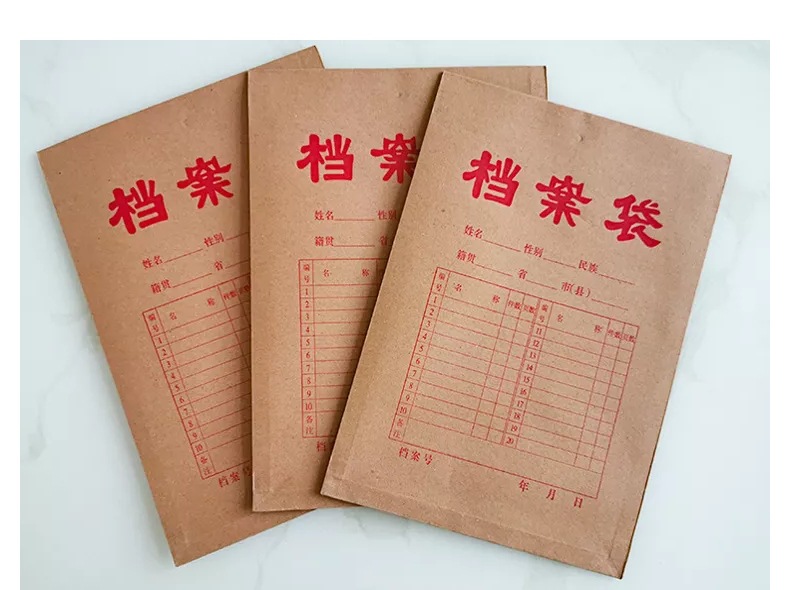 档案
姓名______性别
籍贯______省
编号 名 称 件数 页数
1
2
3
4
5
6
7
8
9
10
备注
档案号
档案
姓名______性别
籍贯______省
编号 名 称
1
2
3
4
5
6
7
8
9
10
备注
档案号
档案袋
姓名______性别______民族______
籍贯______省______市(县)______
编号 名 称 件数 页数 编号 名 称 件数 页数
1 11
2 12
3 13
4 14
5 15
6 16
7 17
8 18
9 19
10 20
备注
档案号
年 月 日